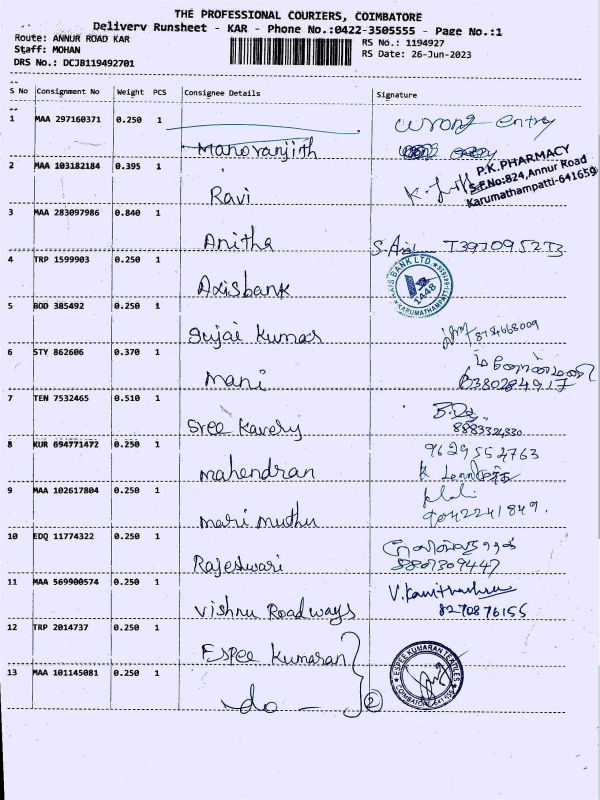 THE PROFESSIONAL COURIERS, COIMBATORE
Delivery Runsheet - KAR - Phone No.:0422-3505555 - Page No.:1
Route: ANNUR ROAD KAR
Staff: MOHAN
DRS No.: DCJB119492701
RS No.: 1194927
RS Date: 26-Jun-2023
S No Consignment No Weight PCS Consignee Details Signature
1 MAA 297160371 0.250 1 Manoranjith wrong entry
2 MAA 103182184 0.395 1 Ravi
P.K.PHARMACY
S.F.No:824,Annur Road
Karumathampatti-641659
3 MAA 283097986 0.840 1 Anitha
4 TRP 1599903 0.250 1 Axisbank
AXIS BANK LTD
1448
KARUMATHAMPATTI
5 BOD 385492 0.250 1 Sujai Kumar
6 STY 862606 0.370 1 Mani
7 TEN 7532465 0.510 1 Sree Kavery
8 KUR 694771472 0.250 1 Mahendran
9629554763
9 MAA 102617804 0.250 1 Mari muthu
9042241849.
10 EDQ 11774322 0.250 1 Rajeshwari
8807309447
11 MAA 569900574 0.250 1 Vishnu Roadways
8270876155
12 TRP 2014737 0.250 1 Espee Kumaran
13 MAA 101145081 0.250 1 -do- 2
ESPEE KUMARAN TEXTILES
COIMBATORE-641 659